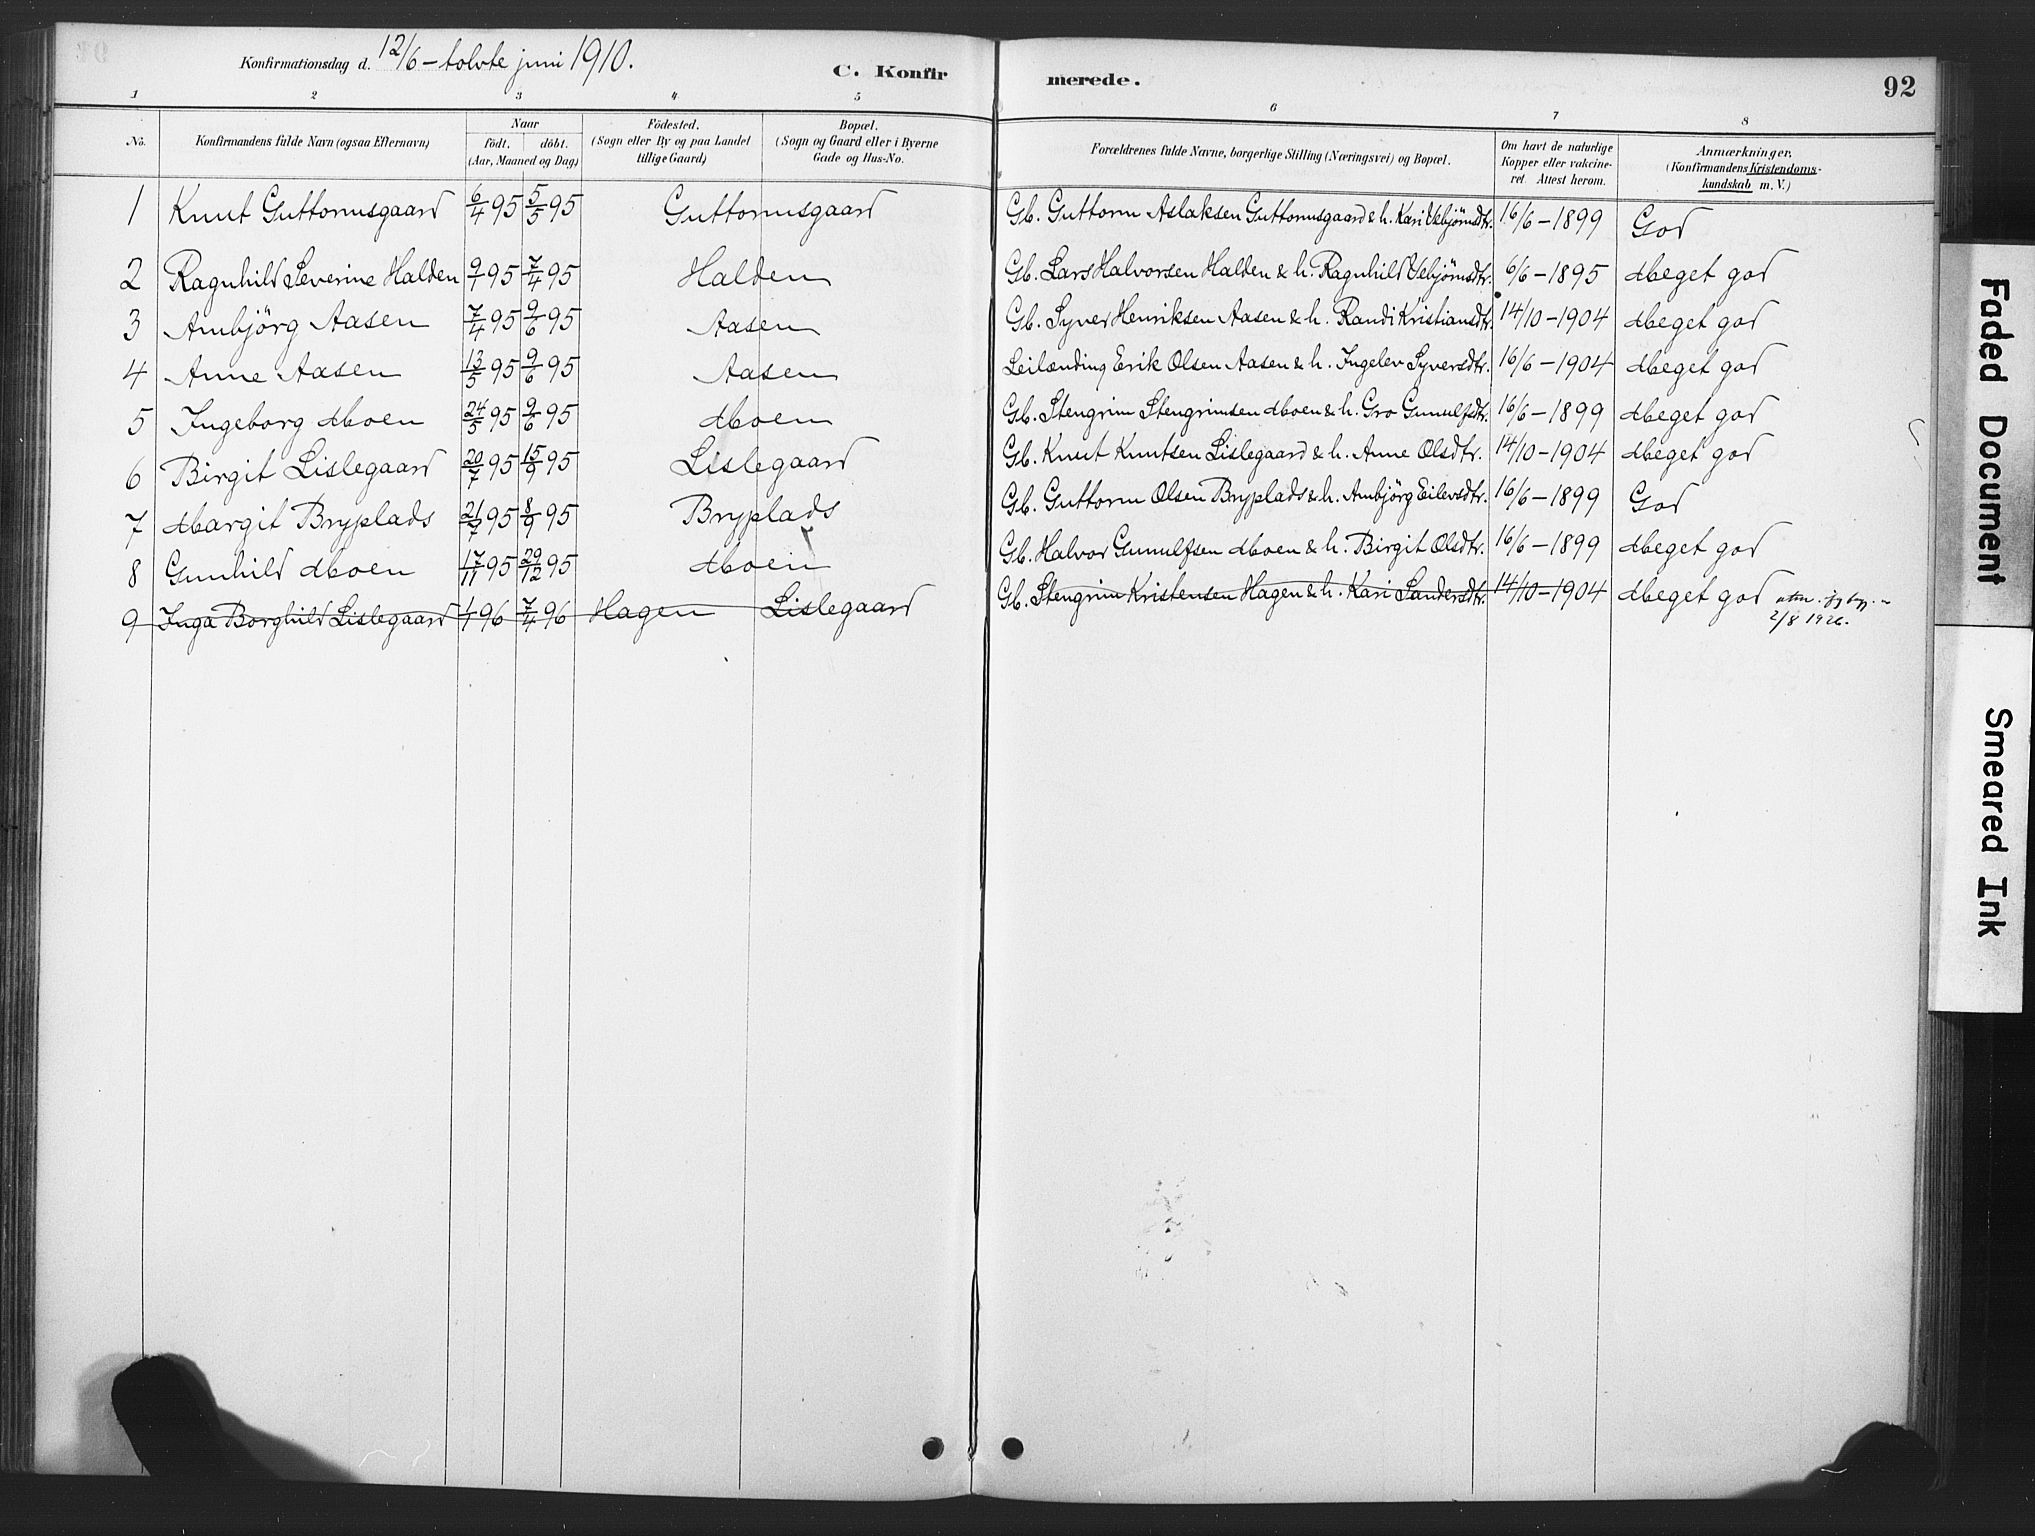 Konfirmationsdag d. 12/6 - tolvte juni 1910.
C. Konfirmerede.
92
1 2 3 4 5 6 7 8
No.
Konfirmandens fulde Navn (ogsaa Efternavn)
Naar
födt. döbt.
(Aar, Maaned og Dag)
Födested.
(Sogn eller By og paa Landet
tillige Gaard)
Bopæl.
(Sogn og Gaard eller i Byerne
Gade og Hus-No.
Forældrenes fulde Navne, borgerlige Stilling (Næringsvei) og Bopæl.
Om havt de naturlige
Kopper eller vakcine-
ret. Attest herom.
Anmærkninger.
(Konfirmandens Kristendoms-
kundskab m. V.)
1 Knut Guttormsgaard 6/4 95 5/5 95 Guttormsgaard Gb. Guttorm Aslaksen Guttormsgaard & h. Kari Vebjörnsdtr. 16/6 - 1899 God
2 Ragnhild Severine Halden 9/1 95 7/4 95 Halden Gb. Lars Halvorsen Halden & h. Ragnhild Vebjörnsdtr. 6/6 - 1895 Meget god
3 Ambjörg Aasen 7/4 95 9/6 95 Aasen Gb. Syver Henriksen Aasen & h. Randi Kristiansdtr. 14/10 - 1904 Meget god
4 Anne Aasen 13/5 95 9/6 95 Aasen Leilænding Erik Olsen Aasen & h. Ingelev Syversdtr. 16/6 - 1904 Meget god
5 Ingeborg Moen 24/5 95 9/6 95 Moen Gb. Stengrim Stengrimsen Moen & h. Gro Gunulfsdtr. 16/6 - 1899 Meget god
6 Birgit Lislegaard 20/7 95 15/9 95 Lislegaard Gb. Knut Knutsen Lislegaard & h. Anne Olsdtr. 14/10 - 1904 Meget god
7 Margit Bryplads 21/7 95 8/9 95 Bryplads Gb. Guttorm Olsen Bryplads & h. Ambjörg Eilevsdtr. 16/6 - 1899 God
8 Gunhild Moen 17/11 95 29/12 95 Moen Gb. Halvor Gunulfsen Moen & h. Birgit Olsdtr. 16/6 - 1899 Meget god
9 Inga Borghild Lislegaard 1/1 96 7/4 96 Hagen Lislegaard Gb. Stengrim Kristensen Hagen & h. Kari Sandersdtr. 14/10 - 1904 Meget god
2/8 1926.
Faded Document
Smeared Ink